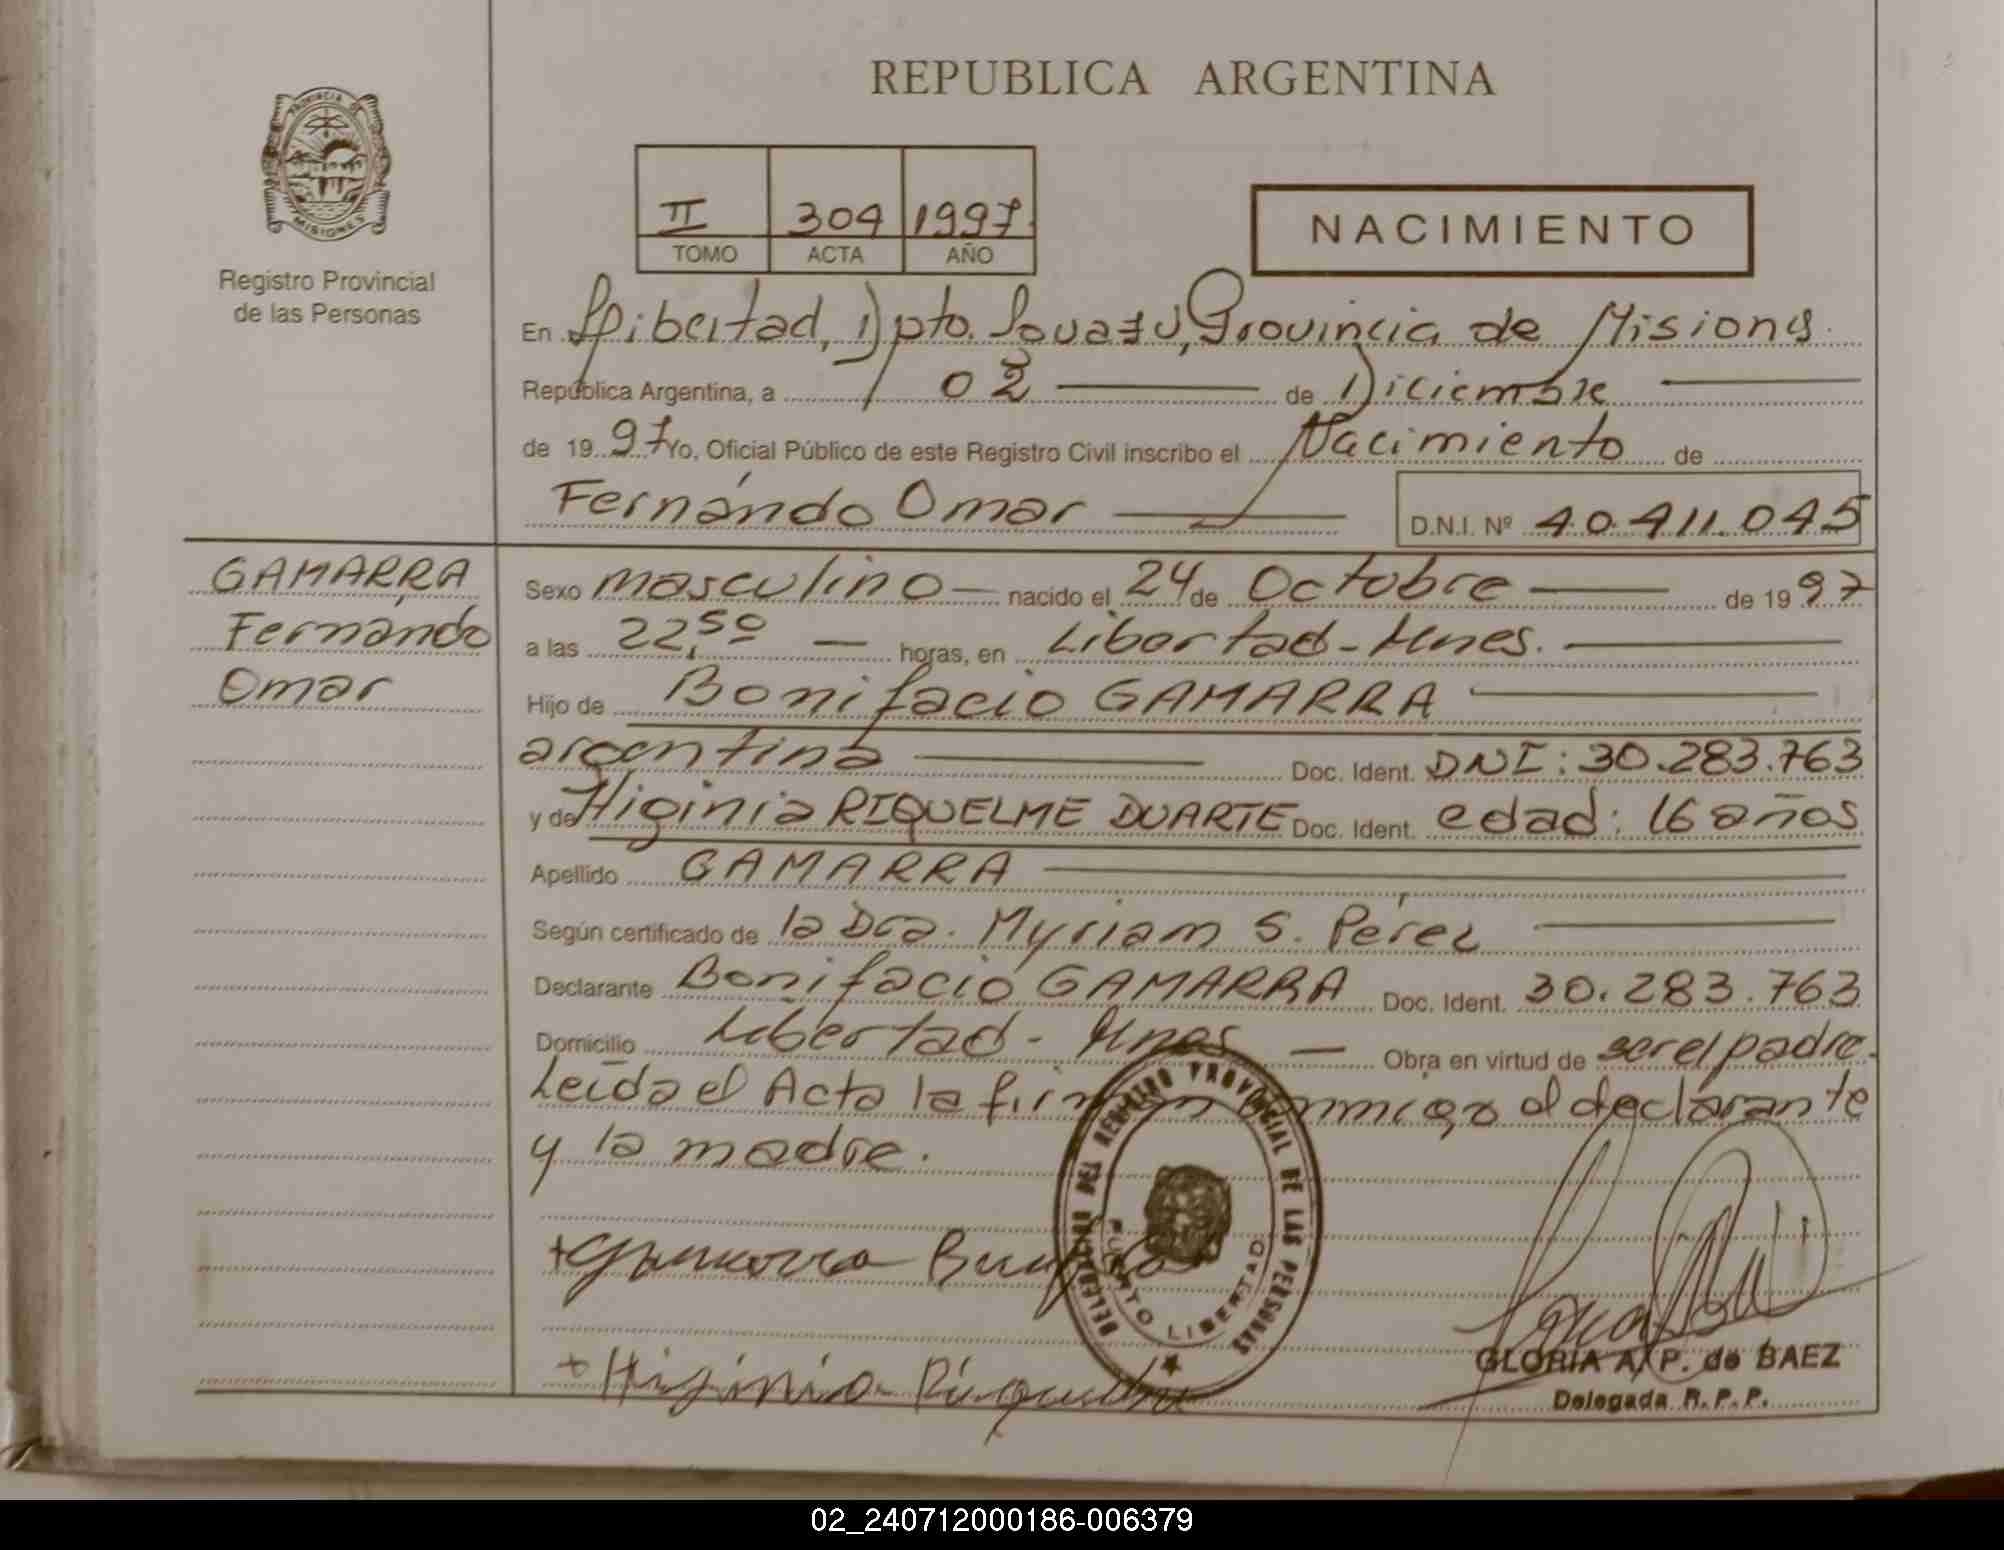 REPUBLICA ARGENTINA
PROVINCIA DE MISIONES
Registro Provincial
de las Personas
II 304 1997
TOMO ACTA AÑO
NACIMIENTO
En Libertad, Dpto. Iguazú, Provincia de Misiones
República Argentina, a 02 de Diciembre
de 1997 Yo, Oficial Público de este Registro Civil inscribo el Nacimiento de
Fernándo Omar D.N.I. Nº 40.411.045
GAMARRA
Fernándo
Omar
Sexo masculino nacido el 24 de Octubre de 1997
a las 22,50 horas, en Libertad - Mnes.
Hijo de Bonifacio GAMARRA
argentina Doc. Ident. DNI: 30.283.763
y de Higinia RIQUELME DUARTE Doc. Ident. edad: 16 años
Apellido GAMARRA
Según certificado de la Dra. Myriam S. Pérez
Declarante Bonifacio GAMARRA Doc. Ident. 30.283.763
Domicilio Libertad - Mnes Obra en virtud de ser el padre.
Leída el Acta la firman conmigo el declarante
y la madre.
DELEGACION DEL REGISTRO PROVINCIAL DE LAS PERSONAS
PUERTO LIBERTAD
+ Gamarra
+ Higinia
GLORIA A. P. de BAEZ
Delegada R. P. P.
02_240712000186-006379